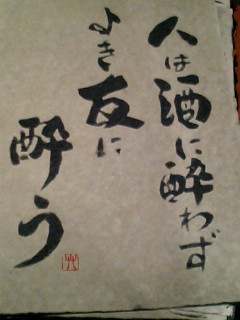 人は酒に酔わず
よき友に
酔う